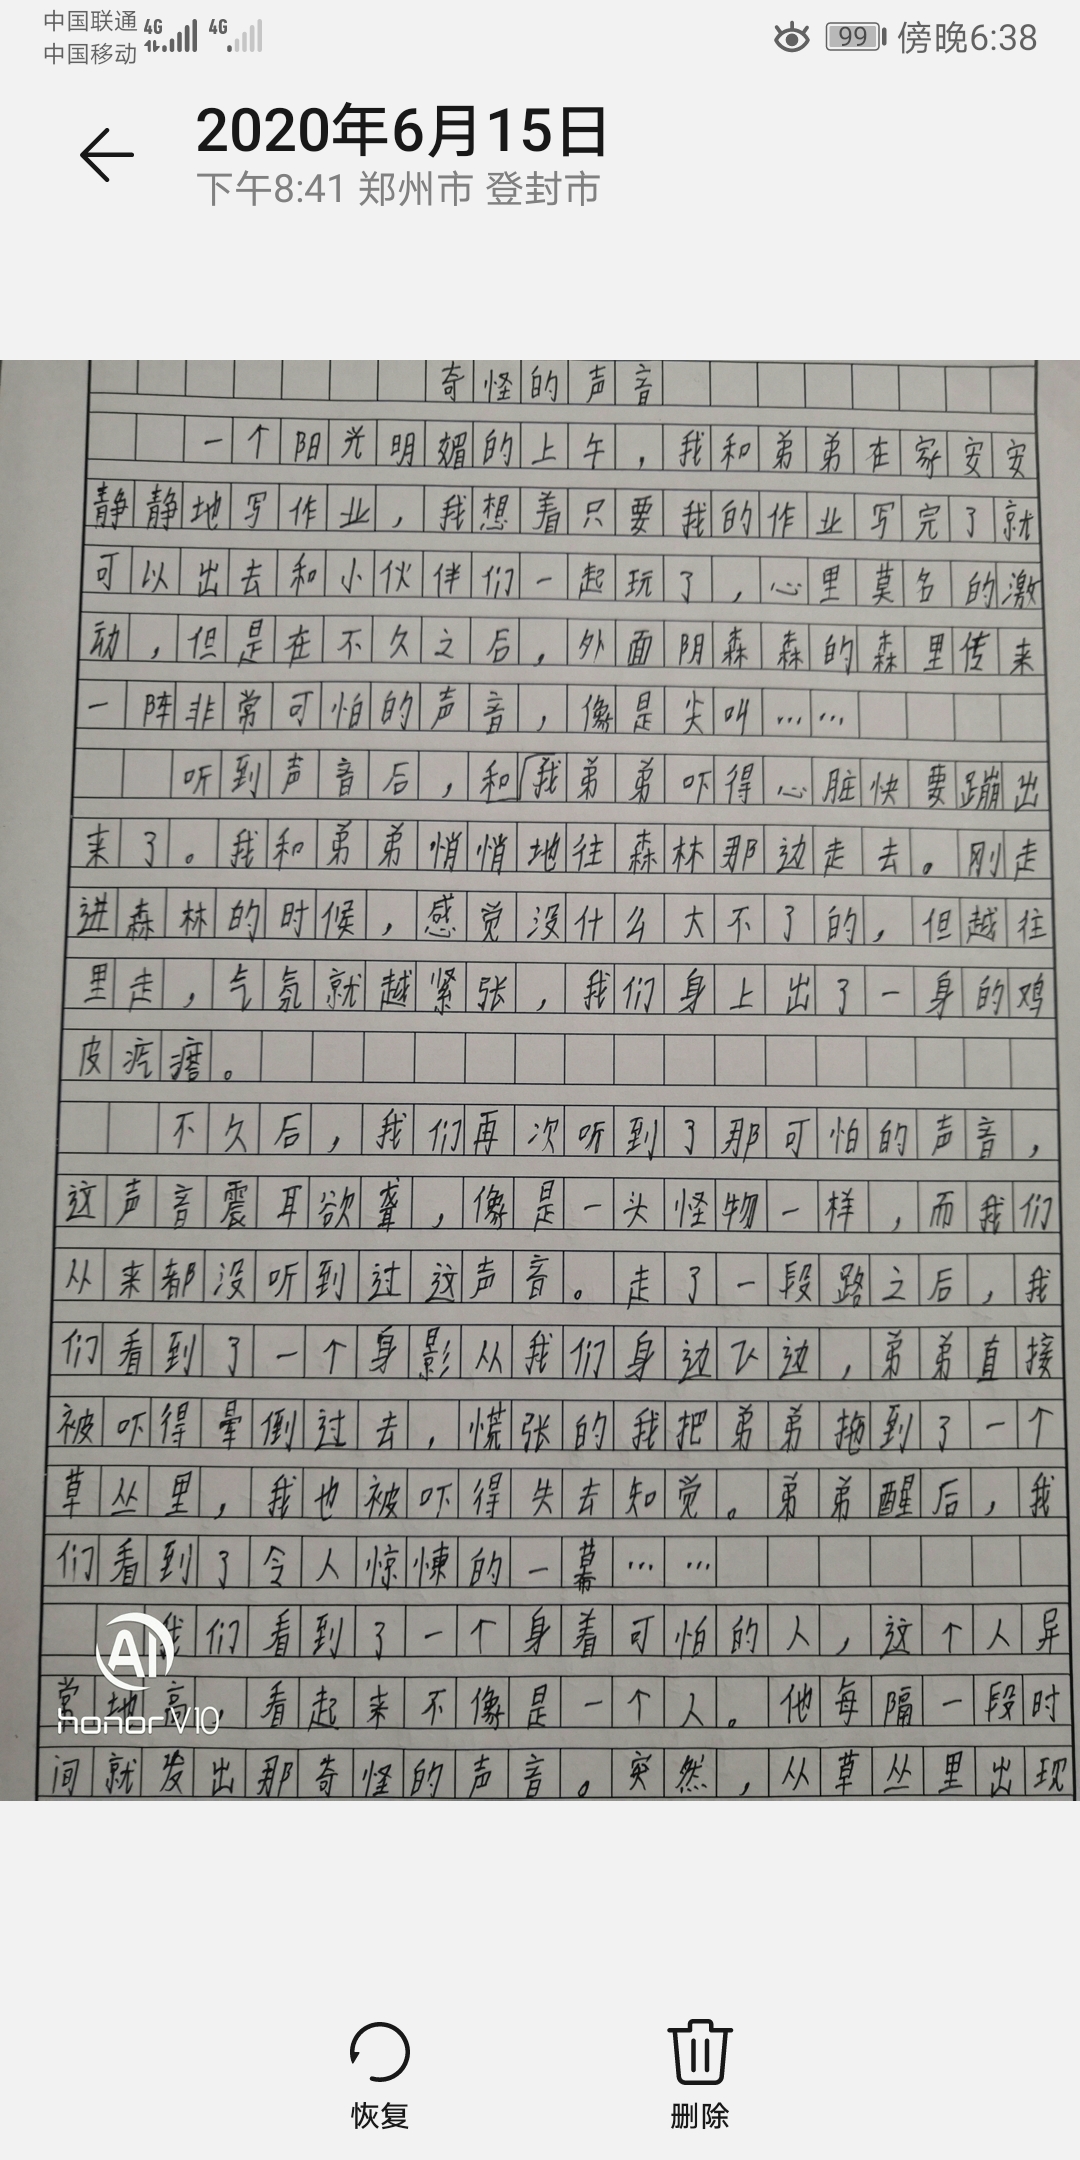 中国联通 4G 4G 99 傍晚6:38
中国移动
2020年6月15日
下午8:41 郑州市 登封市
奇怪的声音
一个阳光明媚的上午，我和弟弟在家安安
静静地写作业，我想着只要我的作业写完了就
可以出去和小伙伴们一起玩了，心里莫名的激
动，但是在不久之后，外面阴森森的森里传来
一阵非常可怕的声音，像是尖叫……
听到声音后，和我弟弟吓得心脏快要蹦出
来了。我和弟弟悄悄地往森林那边走去。刚走
进森林的时候，感觉没什么大不了的，但越往
里走，气氛就越紧张，我们身上出了一身的鸡
皮疙瘩。
不久后，我们再次听到了那可怕的声音，
这声音震耳欲聋，像是一头怪物一样，而我们
从来都没听到过这声音。走了一段路之后，我
们看到了一个身影从我们身边飞边，弟弟直接
被吓得晕倒过去，慌张的我把弟弟拖到了一个
草丛里，我也被吓得失去知觉。弟弟醒后，我
们看到了令人惊悚的一幕……
我们看到了一个身着可怕的人，这个人异
常地高，看起来不像是一个人。他每隔一段时
间就发出那奇怪的声音。突然，从草丛里出现
AI
honor V10
恢复 删除